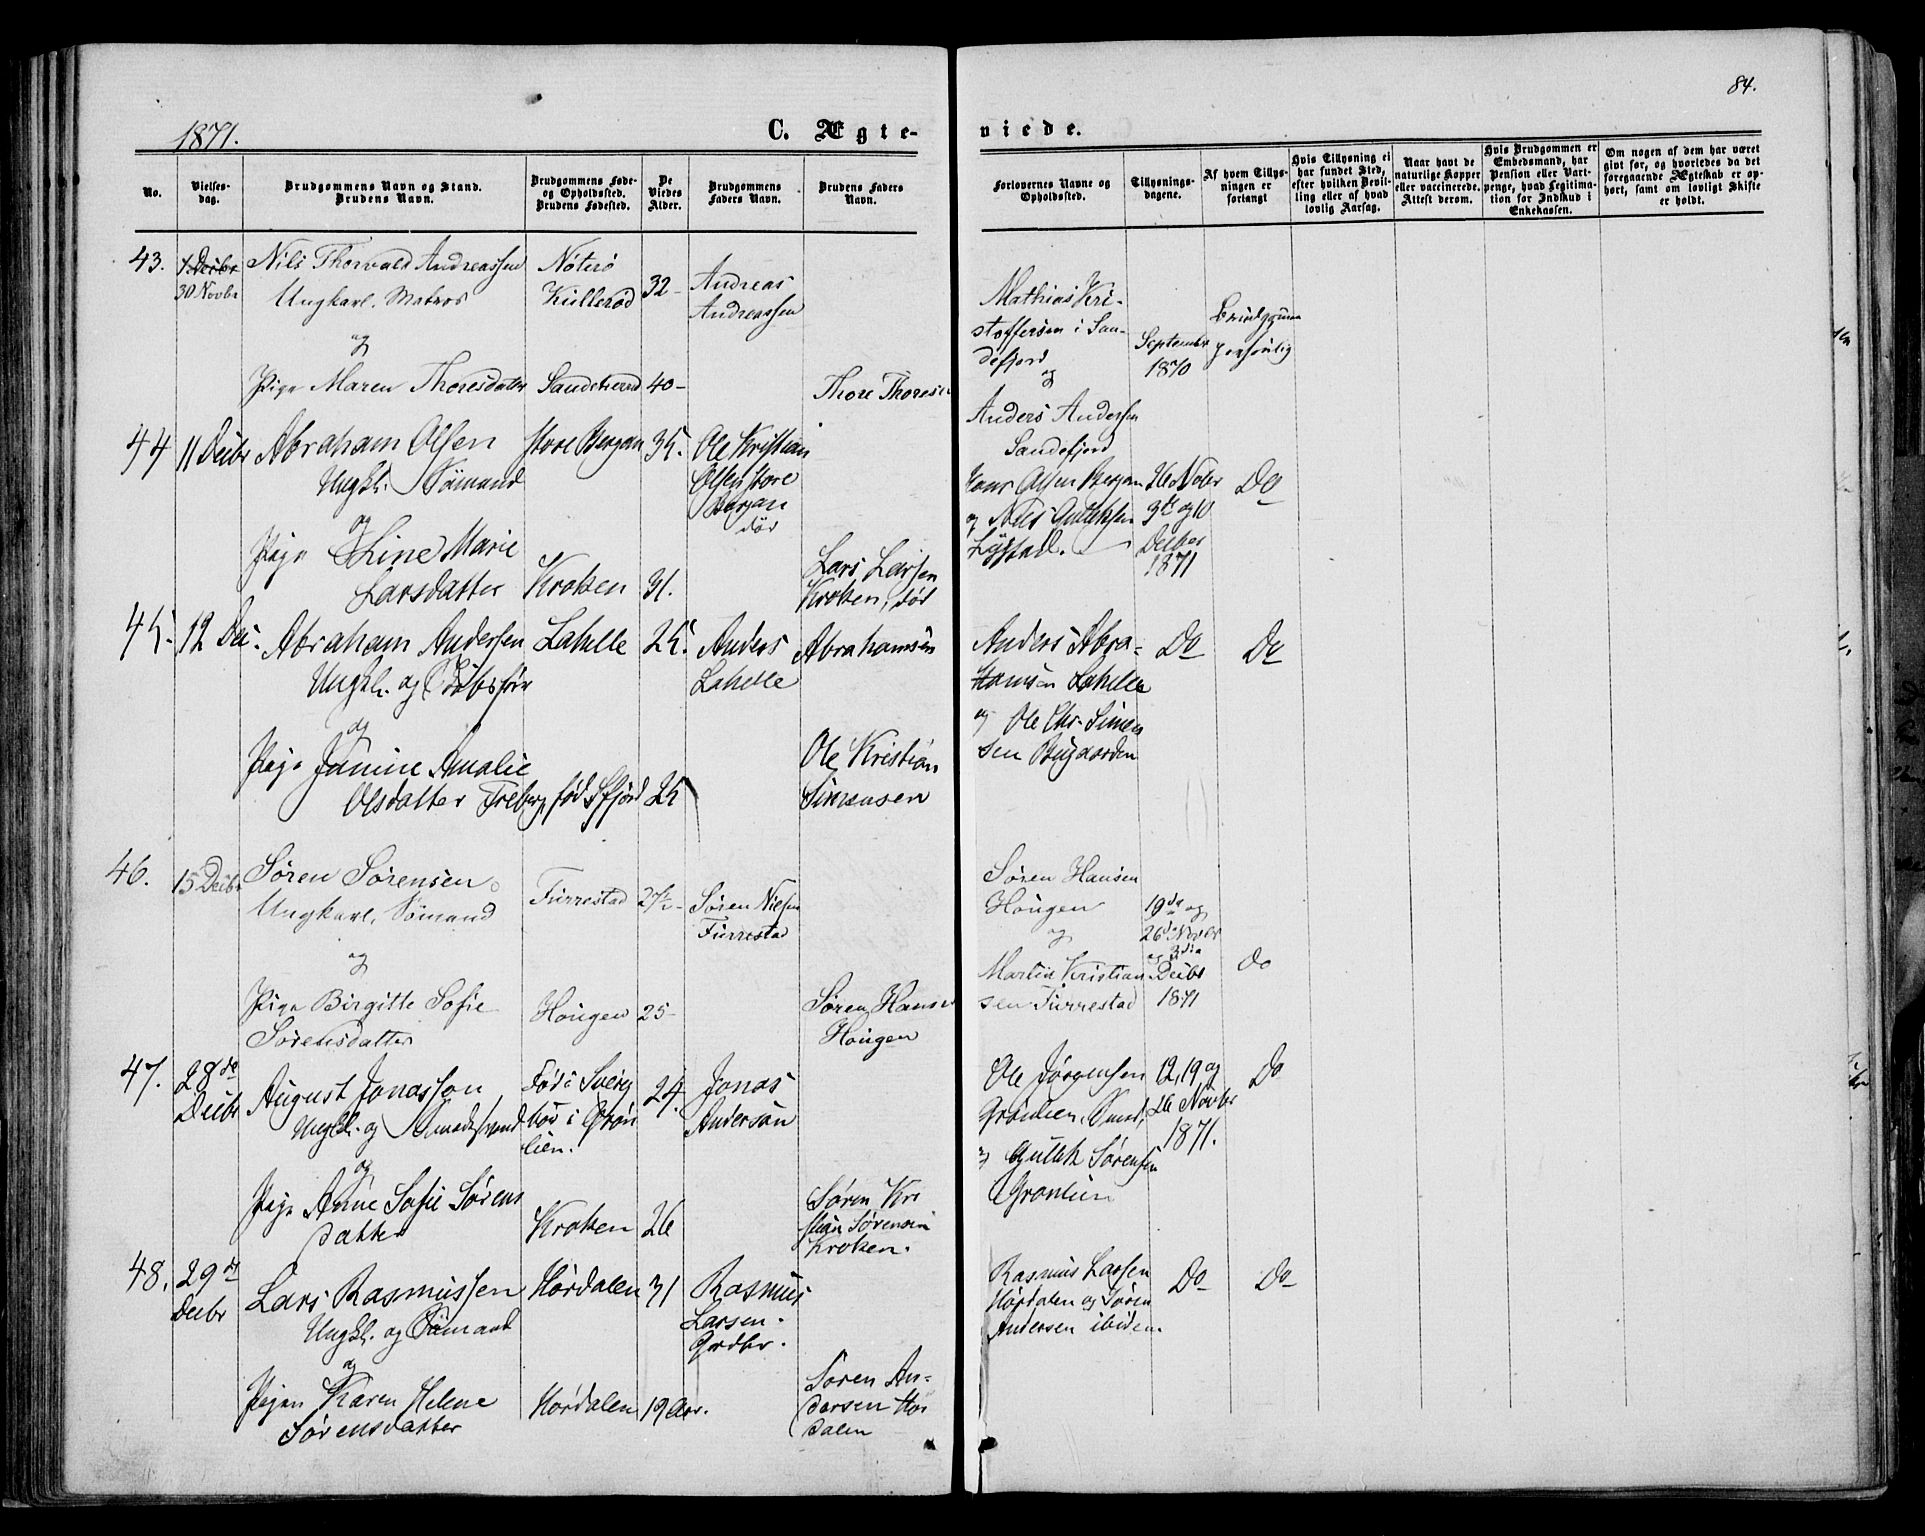 84.
1871.
C. Ægte-
viede.
No.
Vielses-
dag.
Brudgommens Navn og Stand.
Brudens Navn.
Brudgommens Føde-
og Opholdssted.
Brudens Fødested.
De
Viedes
Alder.
Brudgommens
Faders Navn.
Brudens Faders
Navn.
Forlovernes Navne og
Opholdssted.
Tillysnings-
dagene.
Af hvem Tillys-
ningen er
forlangt
Hvis Tillysning ei
har fundet Sted,
efter hvilken Bevil-
ling eller af hvad
lovlig Aarsag.
Naar havt de
naturlige Kopper
eller vaccinerede.
Attest derom.
Hvis Brudgommen er
Embedsmand, har
Pension eller Vart-
penge, hvad Legitima-
tion for Indskud i
Enkekassen.
Om nogen af dem har været
givt før, og hvorledes da det
foregaaende Ægteskab er op-
hørt, samt om lovligt Skifte
er holdt.
43.
1. Decbr
30 Novbr
Nils Thorvald Andreassen
Ungkarl. Matros
og
Pige Maren Thoresdatter
Nøterø
Sandeherred
32
40
Andreas
Andreassen
Thore Thoresen
Mathias Kri-
stoffersen i San-
defjord
og
Anders Andersen
Sandefjord
September
1870
Brudgommen
personlig
44
11 Decbr
Abraham Olsen
Ungkl. Sömand
og
Pige Line Marie
Larsdatter
Store Bergan
Kroken
35.
31.
Ole Kristian
Olsen store
Bergan
död
Lars Larsen
Kroken, död
Hans Olsen Bergan
og Nils Gulliksen
26 Novbr
3die og 10
Decber
1871
Do
45.
12 Dec.
Abraham Andersen
Ungkl. og
og
Pige Janine Amalie
Olsdatter Freberg,
Lahelle
född Sfjord
25.
25
Anders
Lahelle
Abrahamsen
Ole Kristian
Simensen
Anders Abra-
hamsen Lahelle
og Ole Chr. Simen
sen Bugaarden
Do
Do
46.
15 Decbr
Søren Sørensen
Ungkarl, Sømand
og
Pige Birgitte Sofie
Sørensdatter
Furrestad
Hougen
27½
25
Søren Nielsen
Furrestad
Søren Hansen
Hougen
Søren Hansen
Hougen
og
Martin Kristian
sen Furrestad
19de og
26 Novbr
og 3die
Decbr
1871
Do
47.
28de
Decbr
August Jonasson
Ungkl. og
og
Pige Anne Sofie Sørens
datter
Föd i Sverig
boe i Grøn
lien.
Kroken
24.
26
Jonas
Anderson
Søren Kri
stian Sørensen
Kroken.
Ole Jørgensen
Grönlien,
og Gullik Sørensen
Grønlien
12, 19 og
26 Novbr
1871.
Do
48.
29de
Decbr
Lars Rasmussen
Ungkl. og Sømand
og
Pigen Karen Helene
Sörensdatter
Hørdalen
Hørdalen
31
19 Aar.
Rasmus
Larsen.
Grdbr.
Søren An-
dersen Hør
dalen
Rasmus Larsen
Hørdalen og Søren
Andersen ibidem.
Do
Do